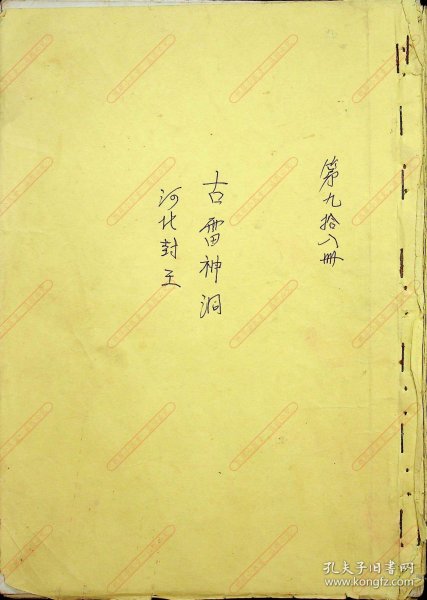 第九拾八册
古雷神洞
河北封王
孔夫子旧书网
www.kongfz.com